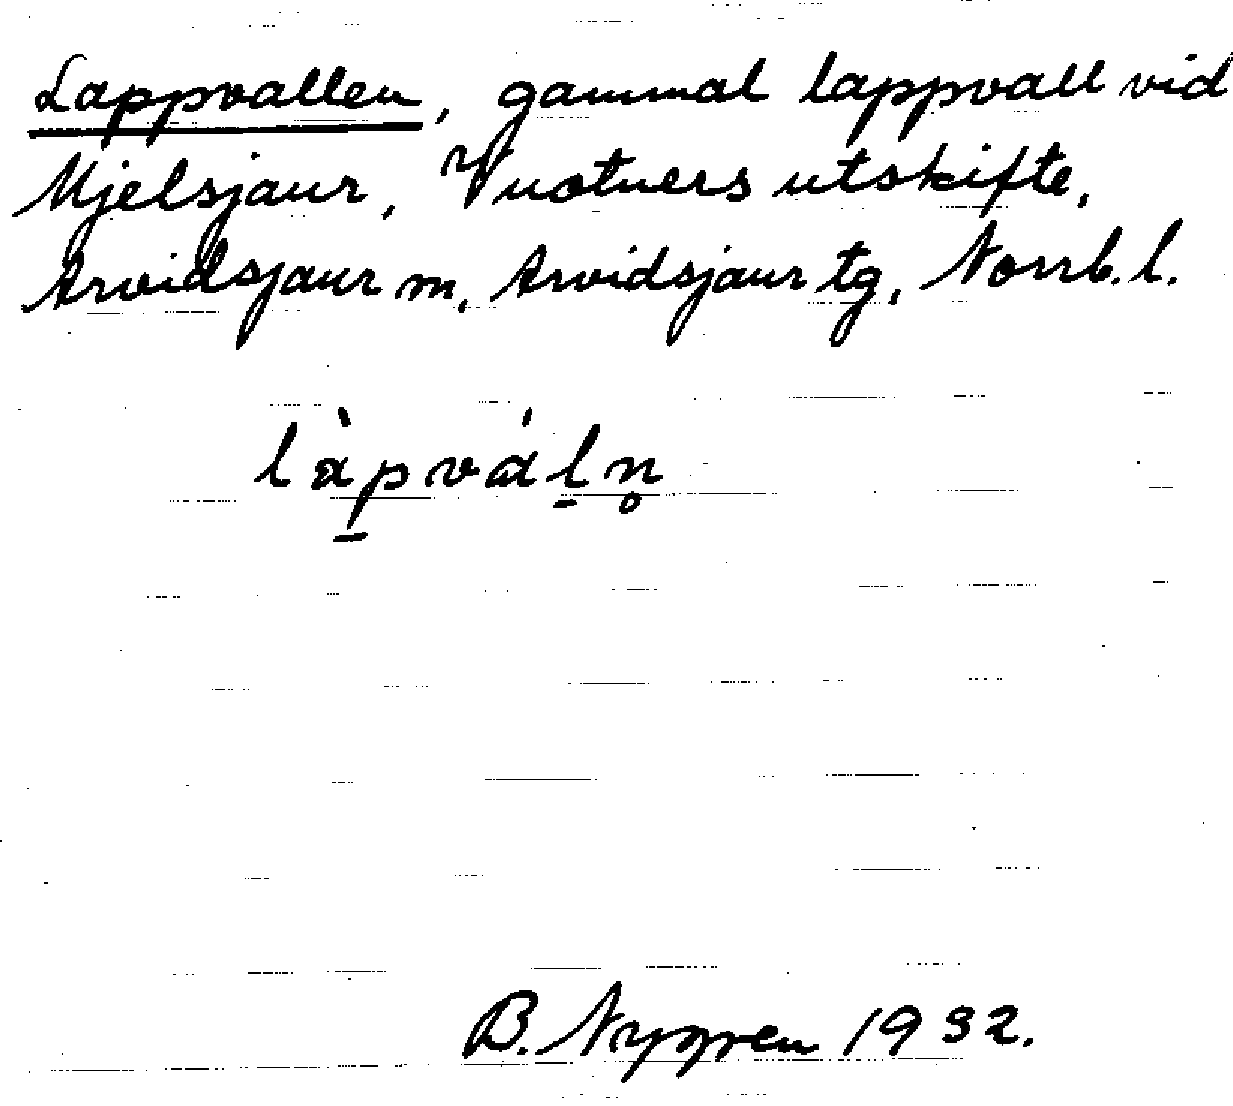 Lappvallen, gammal lappvall vid
Mjelsjaur, Vuotners utskifte,
Arvidsjaur m, Arvidsjaur tg, Norrb. l.
là̱pvál̠n̥
B. Nygren 1932.